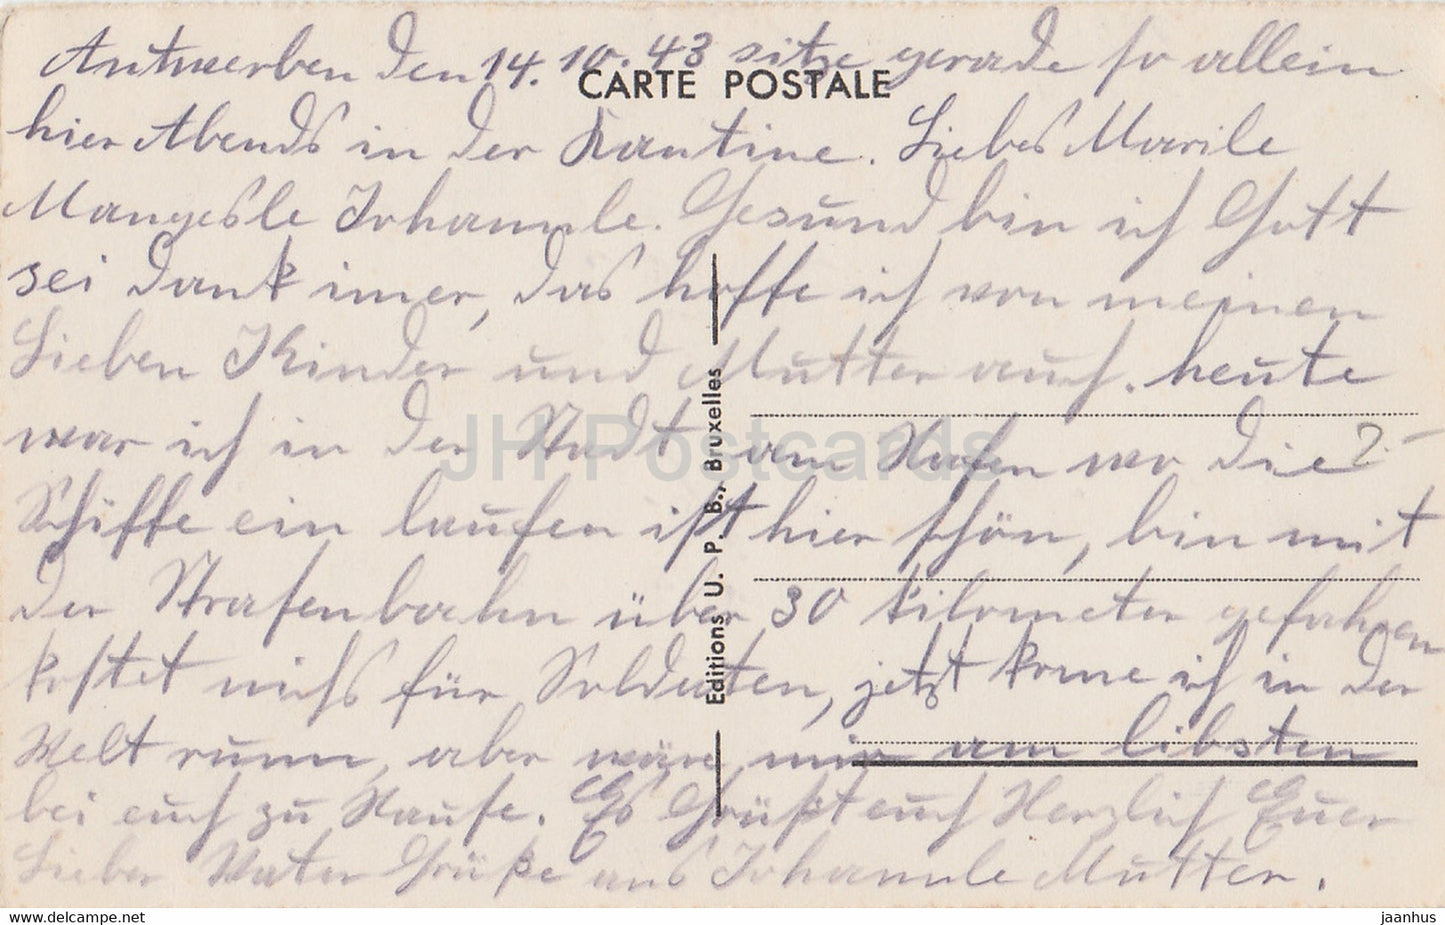 Antwerben den 14.10.43 sitze gerade so allein
CARTE POSTALE
hier Abends in der Kantine. Liebes Marile
Mangesle Johannle. Gesund bin ich Gott
sei dank imer, das hoffe ich von meinen
Lieben Kinder und Mutter auch. heute
war ich in der Stadt am Hafen wo die
2.-
Schiffe ein laufen ist hier schön, bin mit
der Strasenbahn über 30 kilometer gefahren
kostet nichs für Soldaten, jetzt kome ich in der
Welt rumm, aber wäre mir am libsten
bei euch zu Hause. Es Grüßt euch Herzlich Euer
Lieber Vater Grüße ans Johannle Mutter.
Editions U. P. B., Bruxelles
JH Postcards
hippostcard.com/store/jhpostcards
jaanhus